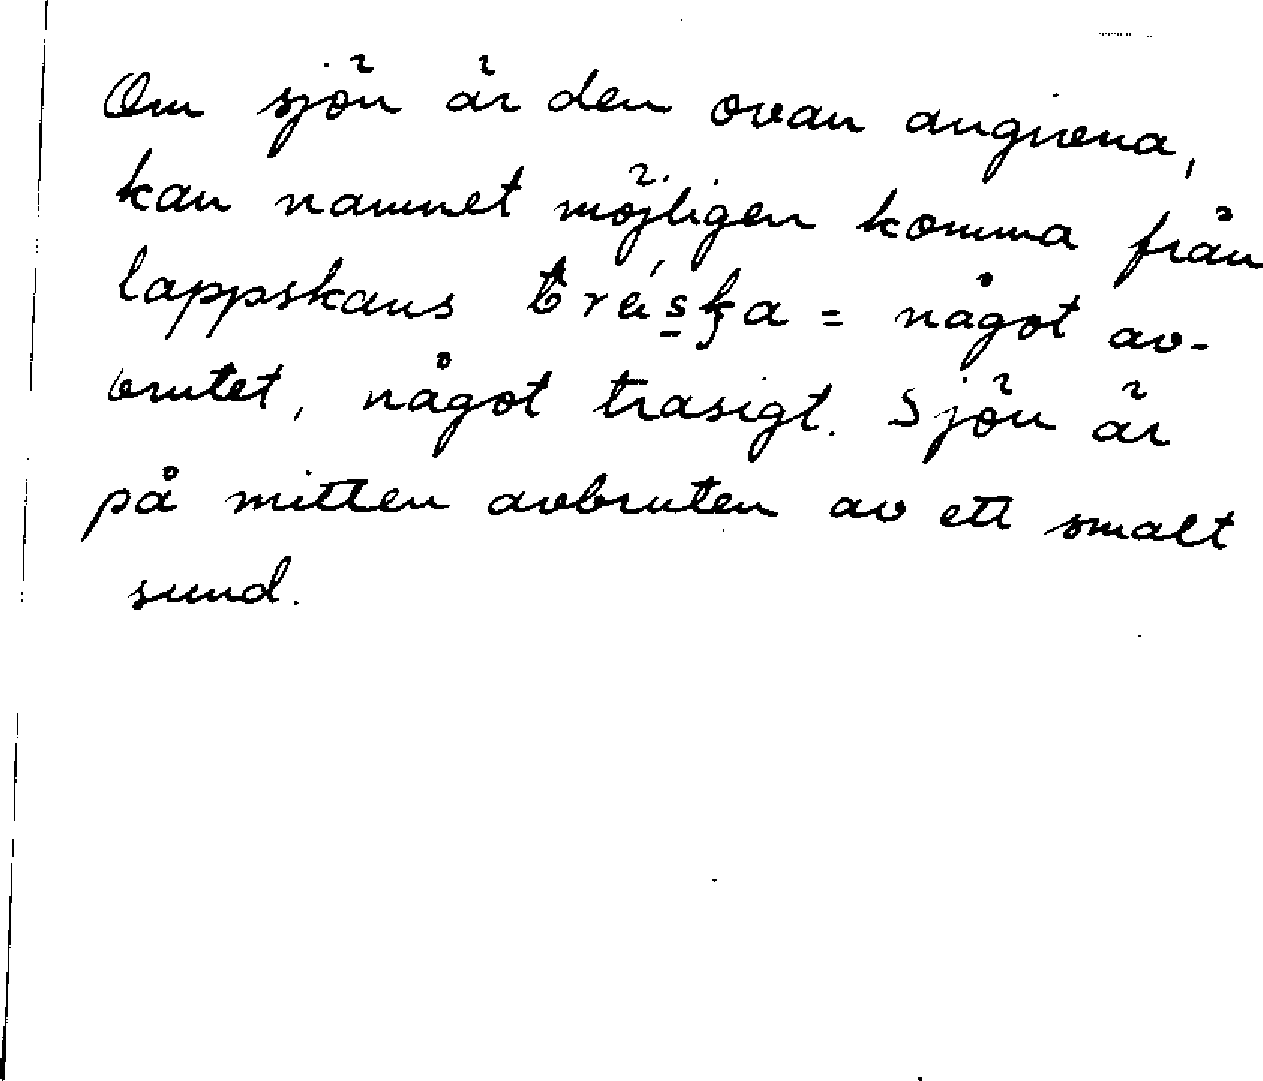 Om sjön är den ovan angivna,
kan namnet möjligen komma från
lappskans tréska = något av-
brutet, något trasigt. Sjön är
på mitten avbruten av ett smalt
sund.